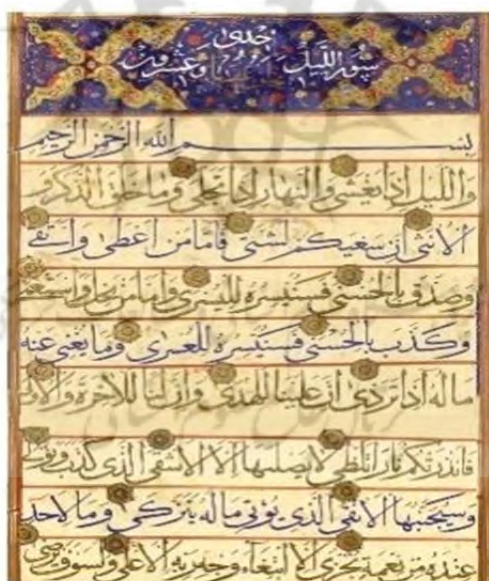 سورة الليل إحدى وعشرون
بسم الله الرحمن الرحيم
والليل اذا يغشى والنهار اذا تجلى وما خلق الذكر و
الانثى ان سعيكم لشتى فاما من اعطى واتقى
وصدق بالحسنى فسنيسره لليسرى واما من بخل واستغنى
وكذب بالحسنى فسنيسره للعسرى وما يغنى عنه
ماله اذا تردى ان علينا للهدى وان لنا للاخرة والاولى
فانذرتكم نارا تلظى لا يصليها الا الاشقى الذى كذب وتولى
وسيجنبها الاتقى الذى يؤتى ماله يتزكى وما لاحد
عنده من نعمة تجزى الا ابتغاء وجه ربه الاعلى ولسوف يرضى